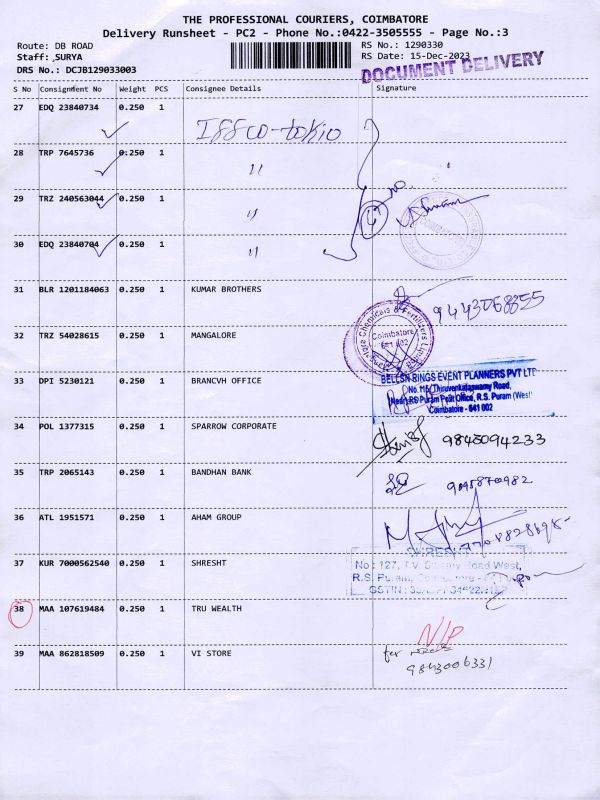 THE PROFESSIONAL COURIERS, COIMBATORE
Delivery Runsheet - PC2 - Phone No.:0422-3505555 - Page No.:3
Route: DB ROAD RS No.: 1290330
Staff: SURYA RS Date: 15-Dec-2023
DRS No.: DCJB129033003
DOCUMENT DELIVERY
S No Consignment No Weight PCS Consignee Details Signature
27 EDQ 23840734 0.250 1
Iffco-tokio
28 TRP 7645736 0.250 1 "
29 TRZ 240563044 0.250 1 "
30 EDQ 23840704 0.250 1 "
31 BLR 1201184063 0.250 1 KUMAR BROTHERS
32 TRZ 54028615 0.250 1 MANGALORE
Coimbatore
641 002
33 DPI 5230121 0.250 1 BRANCVH OFFICE
RINGS EVENT PLANNERS PVT LTD
No. 115, Thiruvenkataswamy Road,
Near RS Puram Post Office, R.S. Puram (West)
Coimbatore - 641 002
34 POL 1377315 0.250 1 SPARROW CORPORATE
9845094233
35 TRP 2065143 0.250 1 BANDHAN BANK
36 ATL 1951571 0.250 1 AHAM GROUP
37 KUR 7000562540 0.250 1 SHRESHT
SHRESHT
No : 127, T.V. Swamy Road West,
R.S. Puram,
GSTIN :
38 MAA 107619484 0.250 1 TRU WEALTH
N/P
39 MAA 862818509 0.250 1 VI STORE
for
9843006331